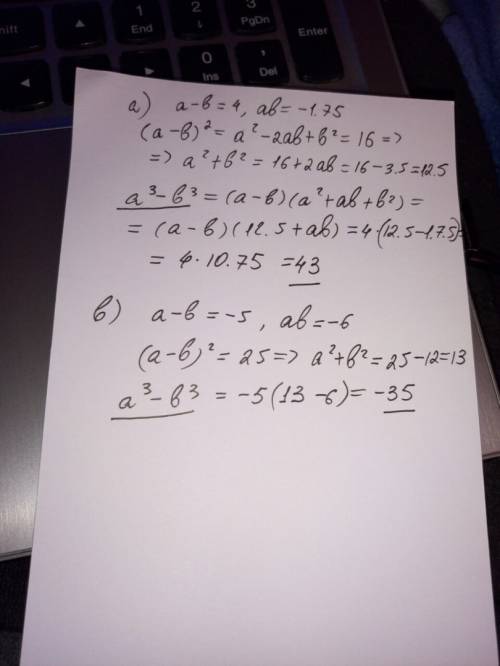 shift
1
End
2
↓
3
PgDn
Enter
0
Ins
,
Del
а) a-в = 4, ав = -1.75
(а-в)² = а²-2ав+в² = 16 =>
=> а²+в² = 16+2ав = 16-3.5=12.5
а³-в³ = (а-в)(а²+ав+в²) =
= (а-в)(12.5+ав) = 4·(12.5-1.75)=
= 4·10.75 = 43
в) а-в = -5, ав = -6
(а-в)² = 25 => а²+в² = 25-12=13
а³-в³ = -5(13-6) = -35